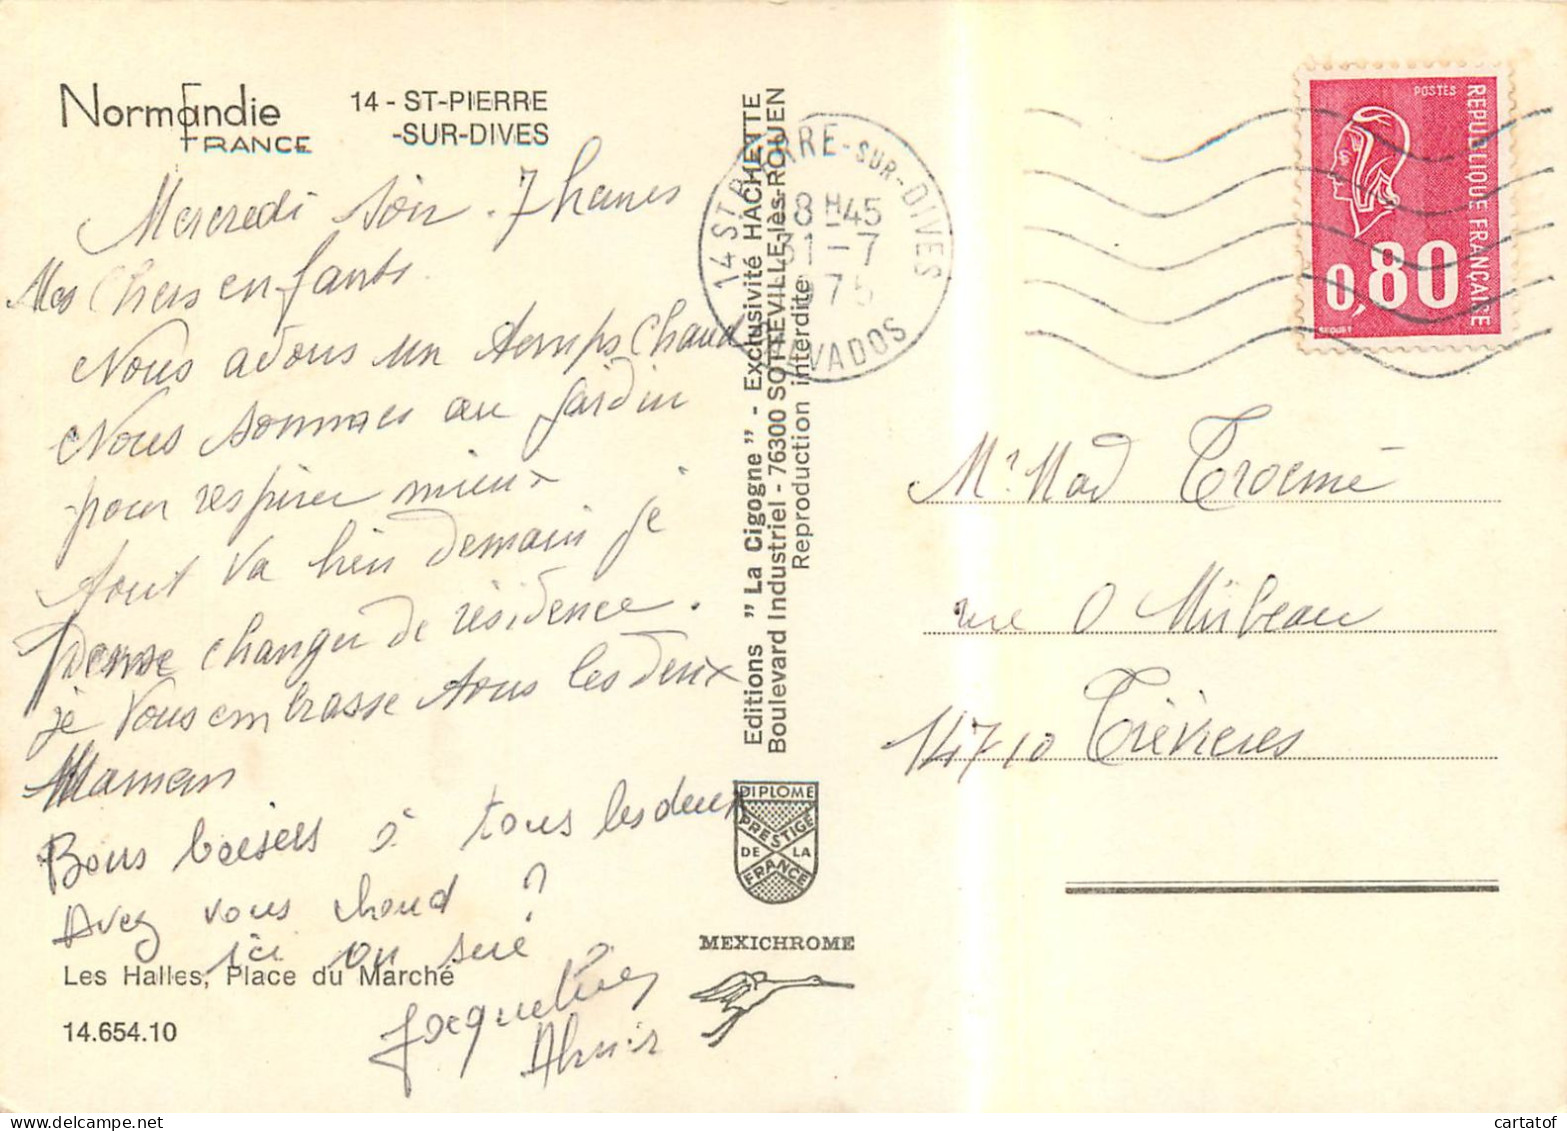 Normandie
FRANCE
14 - ST-PIERRE
-SUR-DIVES
Mercredi soir. 7 heures
Mes Chers enfants.
Nous avons un temps chaud
Nous sommes au jardin
pour respirer mieux
tout va bien demain je
pense changer de résidence.
je vous embrasse tous les deux
Maman
Bons baisers à tous les deux
Avez vous chaud ?
ici on sue
Jacqueline
Les Halles, Place du Marché
14.654.10
Editions "La Cigogne" - Exclusivité HACHETTE
Boulevard Industriel - 76300 SOTTEVILLE-lès-ROUEN
Reproduction interdite
DIPLOME
PRESTIGE
DE LA
FRANCE
MEXICHROME
14 ST PIERRE-SUR-DIVES
18 H 45
31-7
1975
CALVADOS
POSTES
REPUBLIQUE FRANÇAISE
0,80
BEQUET
Mr Mad Troemé
rue O Mirbeau
14710 Trévières
cartatof